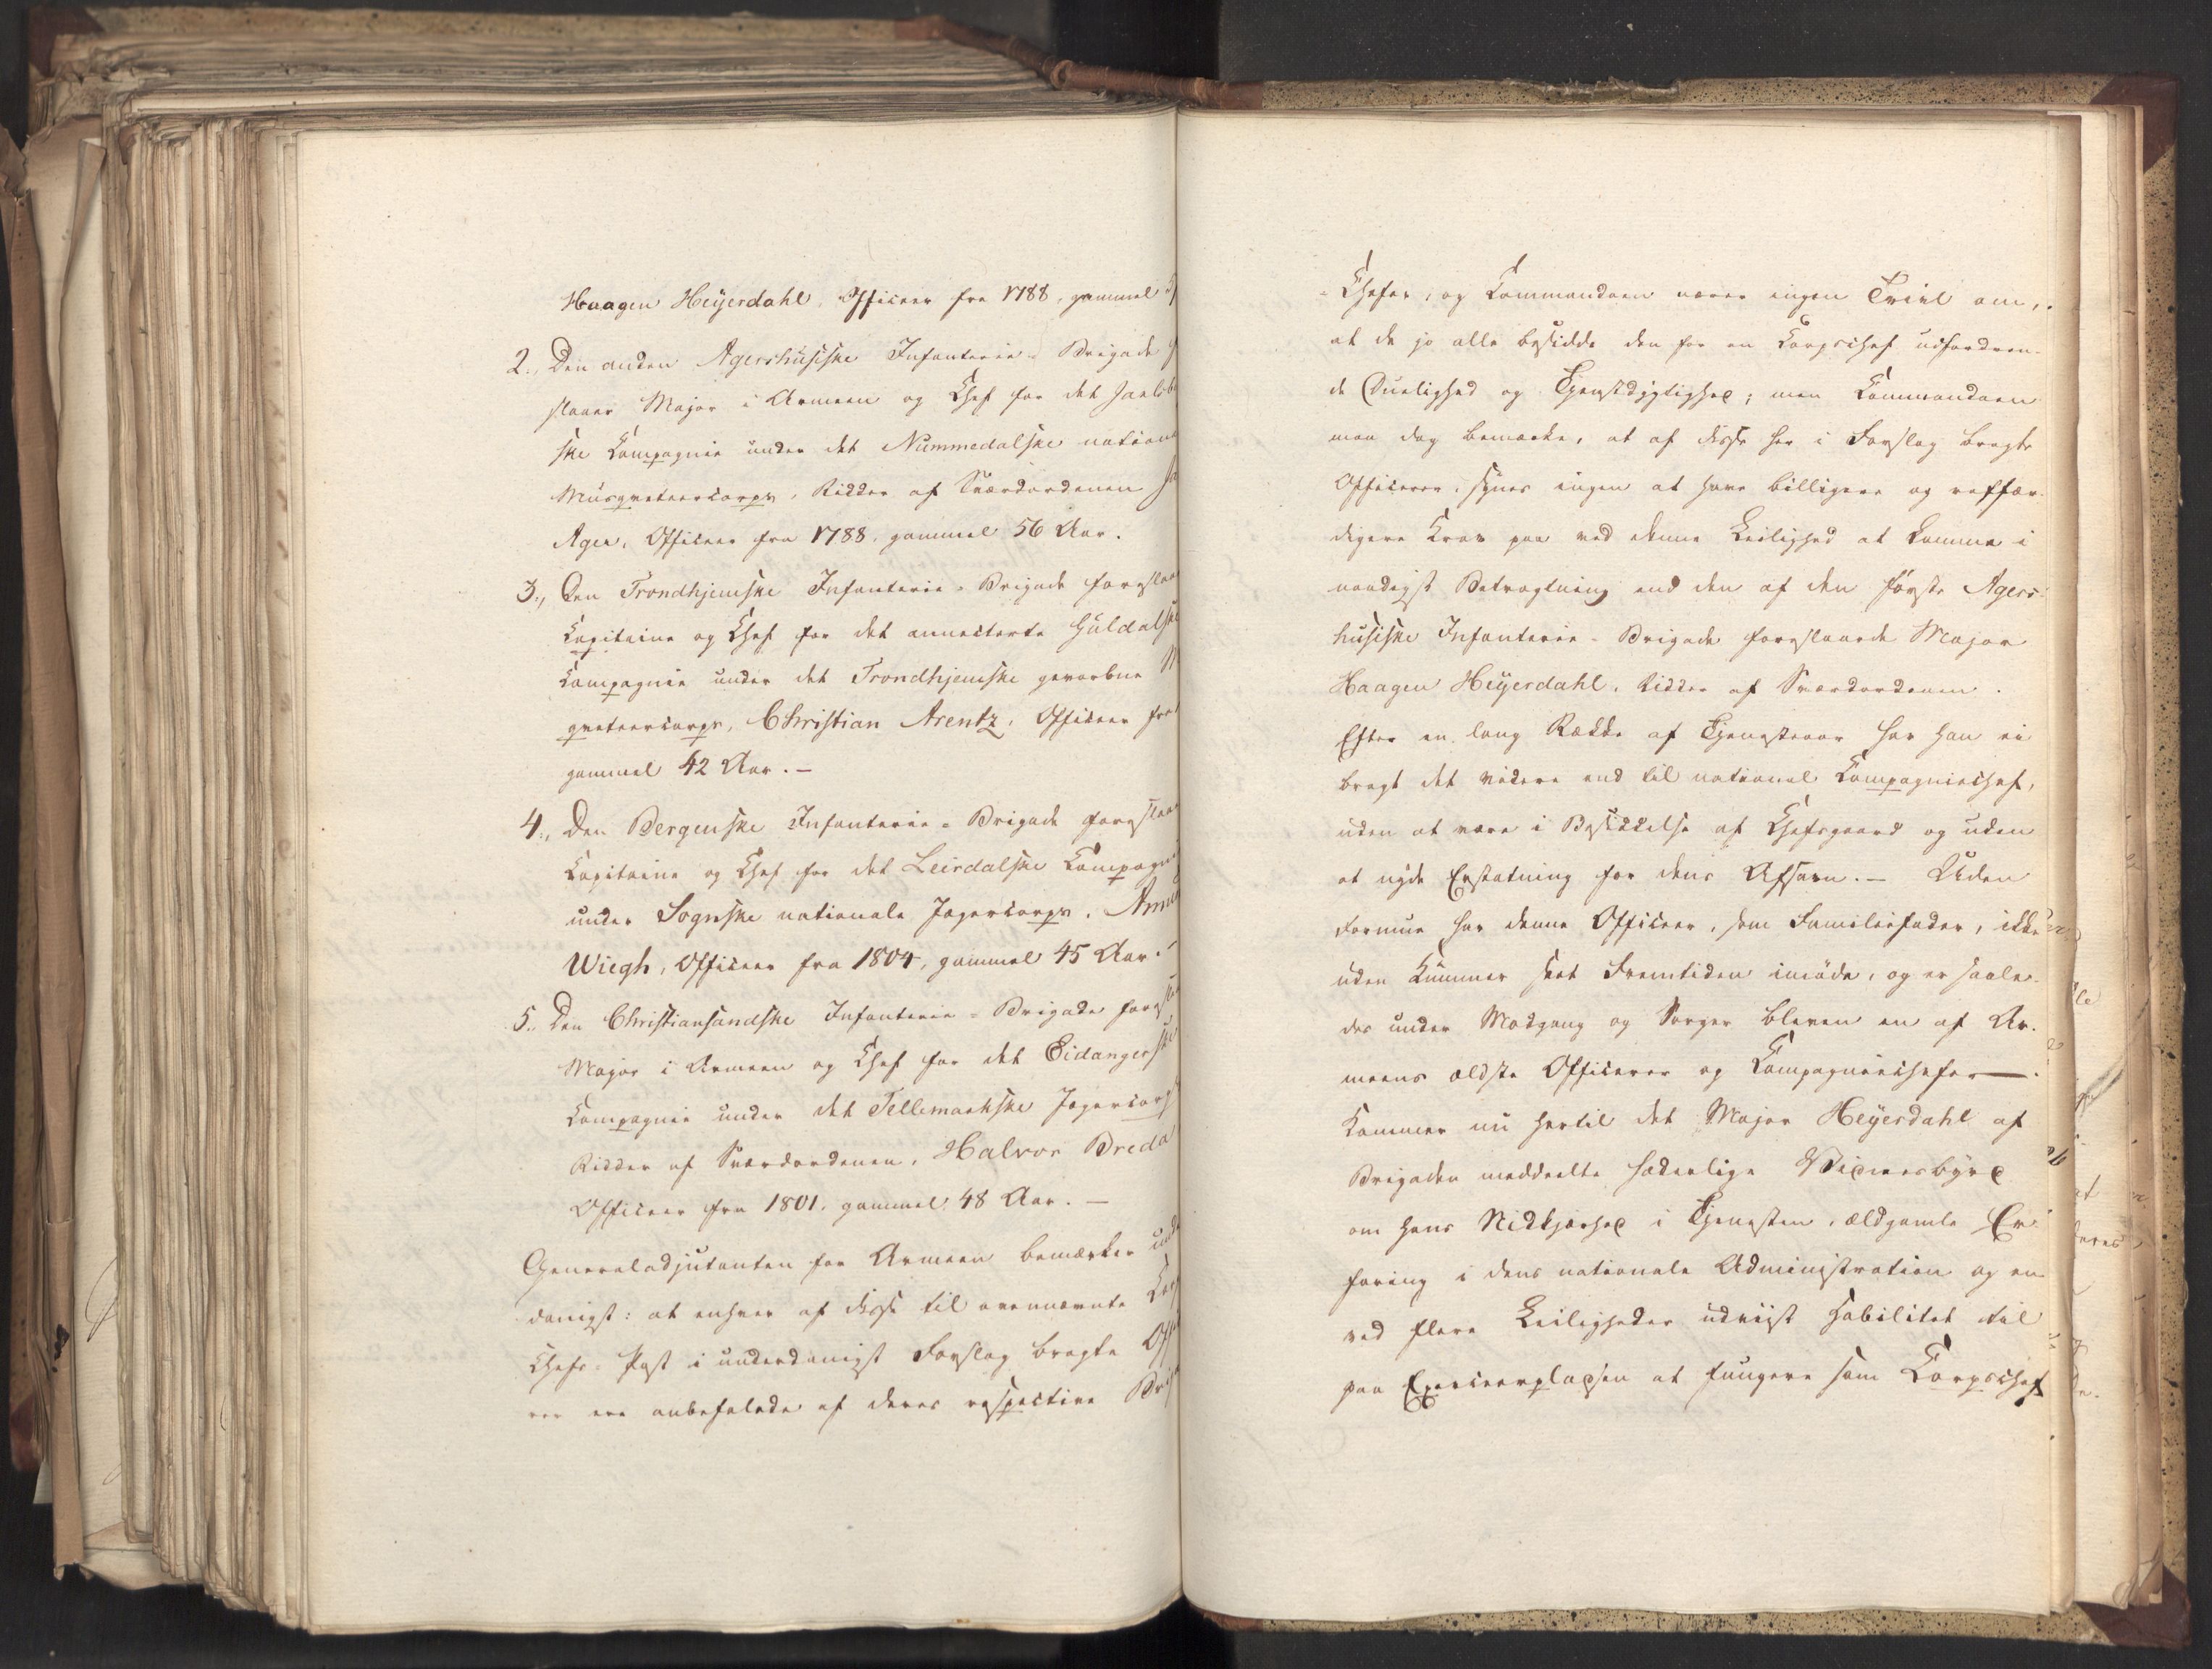 Haagen Heÿerdahl, Officeer fra 1788, gammel 5
2., Den anden Agershusiske Infanterie-Brigade f
slaaer Major i Armeen og Chef for det Jarlsb
ske Compagnie under det Nummedalske nationa
Musqveteercorps, Ridder af Sværdordenen
Ager, Officeer fra 1788, gammel 56 Aar.
3., Den Trondhjemske Infanterie-Brigade foreslaae
Capitaine og Chef for det annecterte Guldalske
Compagnie under det Trondhjemske gevorbne M
qveteercorps, Christian Arentz, Officeer fra
gammel 42 Aar.—
4., Den Bergenske Infanterie-Brigade foreslaae
Capitaine og Chef for det Leirdalske Compagni
under Sognske nationale Jægercorps,
Wiegh, Officeer fra 1804, gammel 45 Aar.—
5., Den Christiansandske Infanterie-Brigade foresla
Major i Armeen og Chef for det Eidangerske
Compagnie under det Tellemarkske Jægercorps
Ridder af Sværdordenen, Halvor Breda
Officeer fra 1801, gammel 48 Aar.—
Generaladjutanten for Armeen bemærker unde
danigst: at enhver af disse til ovennævnte Corp
Chefs-Post i underdanigst Forslag bragte Offi
rer ere anbefalede af deres respective Briga
-Chefer, og Commandoen nærer ingen Tvivl om,
at de jo alle besidde den for en Corpschef udfordren-
de Duelighed og Tjenstdygtighed; men Commandoen
maa dog bemærke, at af disse her i Forslag bragte
Officerer, synes ingen at have billigere og retfær-
digere Krav paa ved denne Leilighed at komme i
naadigst Betragtning end den af den første Agers-
husiske Infanterie-Brigade foreslaaede Major
Haagen Heÿerdahl, Ridder af Sværdordenen.
Efter en lang Række af Tjenesteaar har han ei
bragt det videre end til national Compagniechef,
uden at være i Besiddelse af Chefsgaard og uden
at nyde Erstatning for dens Afsavn.— Uden
Formue har denne Officeer, som Familiefader, ikke
uden Kummer seet Fremtiden imöde, og er saale-
des under Modgang og Sorger bleven en af Ar-
meens ældste Officerer og Compagniechefer—.
Kommer nu hertil det Major Heÿerdahl af
Brigaden meddeelte hæderlige Vidnesbyrd
om hans Nidkjærhed i Tjenesten, ældgamle Er-
faring i dens nationale Administration og en
ved flere Leiligheder udviist Habilitet til
paa Exerceerpladsen at fungere som Corpschef